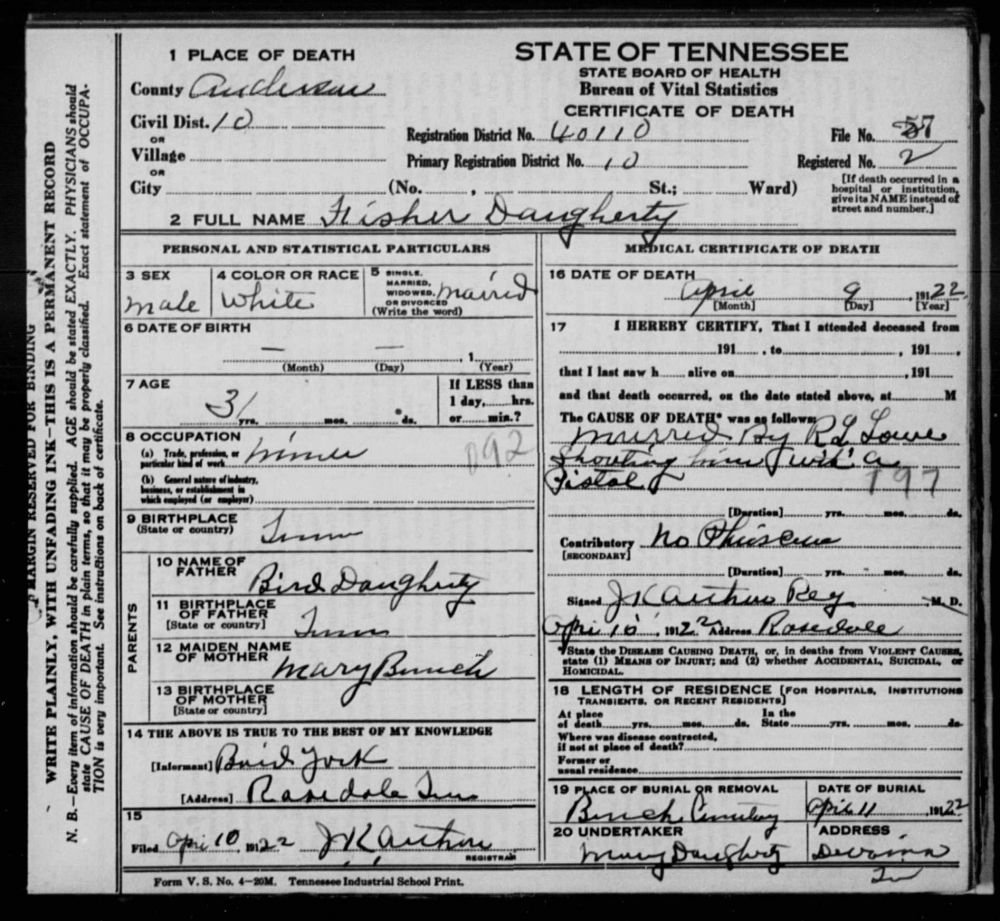 STATE OF TENNESSEE
STATE BOARD OF HEALTH
Bureau of Vital Statistics
CERTIFICATE OF DEATH
1 PLACE OF DEATH
County Anderson
Civil Dist. 10
OR
Village
OR
City (No. , St.; Ward)
Registration District No. 40110 File No. 57
Primary Registration District No. 10 Registered No. 2
[If death occurred in a
hospital or institution,
give its NAME instead of
street and number.]
2 FULL NAME Fisher Daugherty
PERSONAL AND STATISTICAL PARTICULARS
3 SEX
male
4 COLOR OR RACE
White
5 SINGLE,
MARRIED,
WIDOWED,
OR DIVORCED
(Write the word)
married
6 DATE OF BIRTH
— — , 1
(Month) (Day) (Year)
7 AGE
31 yrs. mos. ds.
If LESS than
1 day, hrs.
or min.?
8 OCCUPATION
(a) Trade, profession, or
particular kind of work
miner
092
(b) General nature of industry,
business, or establishment in
which employed (or employer)
9 BIRTHPLACE
(State or country) Tenn
PARENTS
10 NAME OF
FATHER Bird Daugherty
11 BIRTHPLACE
OF FATHER
[State or country] Tenn
12 MAIDEN NAME
OF MOTHER Mary Bunch
13 BIRTHPLACE
OF MOTHER
[State or country]
14 THE ABOVE IS TRUE TO THE BEST OF MY KNOWLEDGE
[Informant] York
[Address] Rosedale Tenn
15
Filed Apri 10 19122 J K Arthur
REGISTRAR
MEDICAL CERTIFICATE OF DEATH
16 DATE OF DEATH
April 9 , 19122
[Month] [Day] [Year]
17 I HEREBY CERTIFY, That I attended deceased from
191 , to , 191 ,
that I last saw h alive on , 191
and that death occurred, on the date stated above, at M
The CAUSE OF DEATH* was as follows:
By R L Lowe
Shooting him with a
Pistol 197
[Duration] yrs. mos. ds.
Contributory No
[SECONDARY]
[Duration] yrs. mos. ds.
Signed J K Arthur Reg M. D.
Apri 10 , 19122 Address Rosedale
*State the DISEASE CAUSING DEATH, or, in deaths from VIOLENT CAUSES,
state (1) MEANS OF INJURY; and (2) whether ACCIDENTAL, SUICIDAL, or
HOMICIDAL.
18 LENGTH OF RESIDENCE [FOR HOSPITALS, INSTITUTIONS
TRANSIENTS, OR RECENT RESIDENTS]
At place
of death yrs. mos. ds.
In the
State yrs. mos. ds.
Where was disease contracted,
if not at place of death?
Former or
usual residence
19 PLACE OF BURIAL OR REMOVAL
Bunch Cemetery
DATE OF BURIAL
April 11 , 19122
20 UNDERTAKER
Daugherty
ADDRESS
Form V. S. No. 4—20M. Tennessee Industrial School Print.
MARGIN RESERVED FOR BINDING
WRITE PLAINLY, WITH UNFADING INK—THIS IS A PERMANENT RECORD
N. B.—Every item of information should be carefully supplied. AGE should be stated EXACTLY. PHYSICIANS should
state CAUSE OF DEATH in plain terms, so that it may be properly classified. Exact statement of OCCUPA-
TION is very important. See instructions on back of certificate.